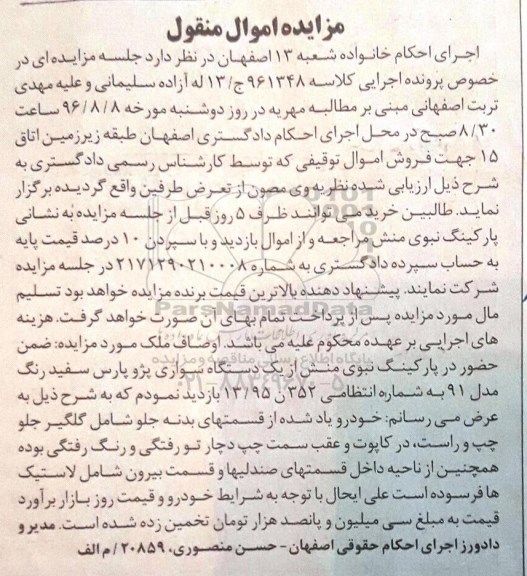 مزایده اموال منقول
اجرای احکام خانواده شعبه ۱۳ اصفهان در نظر دارد جلسه مزایده ای در
خصوص پرونده اجرایی کلاسه ۹۶۱۳۴۸ ج/۱۳ له آزاده سلیمانی و علیه مهدی
تربت اصفهانی مبنی بر مطالبه مهریه در روز دوشنبه مورخه ۹۶/۸/۸ ساعت
۸/۳۰ صبح در محل اجرای احکام دادگستری اصفهان طبقه زیرزمین اتاق
۱۵ جهت فروش اموال توقیفی که توسط کارشناس رسمی دادگستری به
شرح ذیل ارزیابی شده نظریه وی مصون از تعرض طرفین واقع گردیده برگزار
نماید. طالبین خرید می توانند ظرف ۵ روز قبل از جلسه مزایده به نشانی
پارکینگ نبوی منش مراجعه و از اموال بازدید و با سپردن ۱۰ درصد قیمت پایه
به حساب سپرده دادگستری به شماره ۲۱۷۱۲۹۰۲۱۰۰۰۸ در جلسه مزایده
شرکت نمایند. پیشنهاد دهنده بالاترین قیمت برنده مزایده خواهد بود تسلیم
مال مورد مزایده پس از پرداخت تمام بهای آن صورت خواهد گرفت. هزینه
های اجرایی بر عهده محکوم علیه می باشد. اوصاف ملک مورد مزایده: ضمن
حضور در پارکینگ نبوی منش از یک دستگاه سواری پژو پارس سفید رنگ
مدل ۹۱ به شماره انتظامی ۳۵۲ن ۱۳/۹۵ بازدید نمودم که به شرح ذیل به
عرض می رسانم: خودرو یاد شده از قسمتهای بدنه جلو شامل گلگیر جلو
چپ و راست، در کاپوت و عقب سمت چپ دچار تو رفتگی و رنگ رفتگی بوده
همچنین از ناحیه داخل قسمتهای صندلیها و قسمت بیرون شامل لاستیک
ها فرسوده است علی ایحال با توجه به شرایط خودرو و قیمت روز بازار برآورد
قیمت به مبلغ سی میلیون و پانصد هزار تومان تخمین زده شده است. مدیر و
دادورز اجرای احکام حقوقی اصفهان- حسن منصوری، ۲۰۸۵۹/ م الف
ParsNamadData
پایگاه اطلاع رسانی مناقصه و مزایده
۰۲۱-۸۸۳۴۹۶۷۰-۵